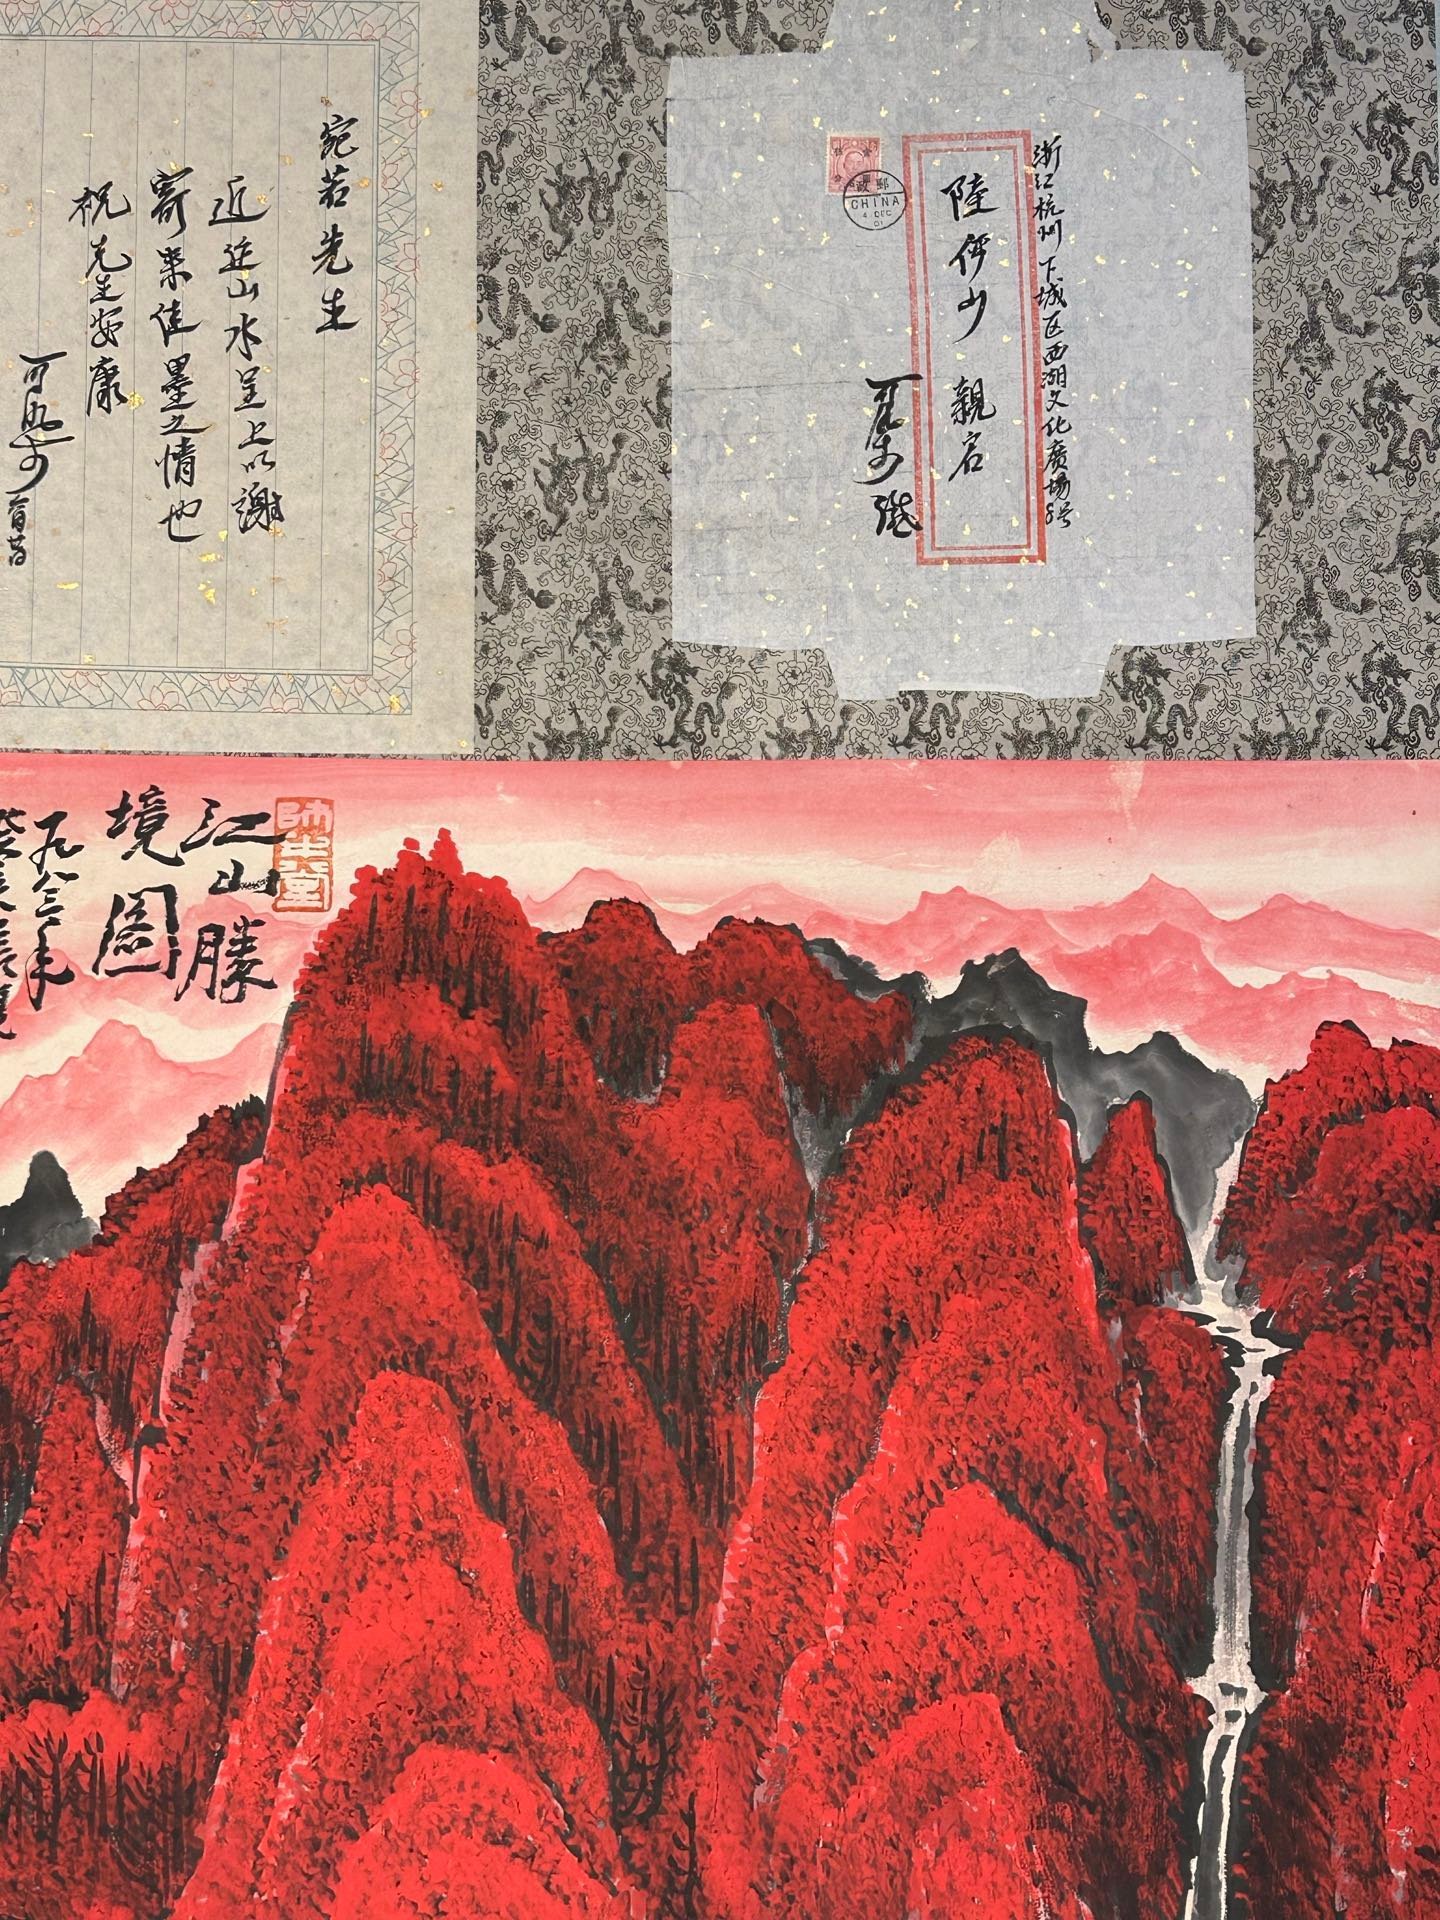 宛若先生
近迋山水呈上以謝
寄来佳墨之情也
祝先生安康
可染
浙江杭州下城区西湖文化廣場8号
陸俨少 親启
可染 缄
郵政
CHINA
4 DEC
01
師牛堂
江山勝
境圖
一九八三年